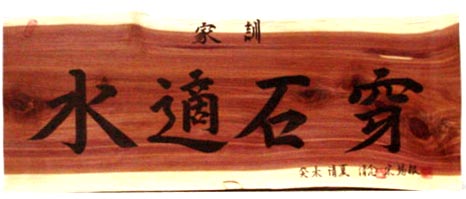 家訓
水適石穿
癸未